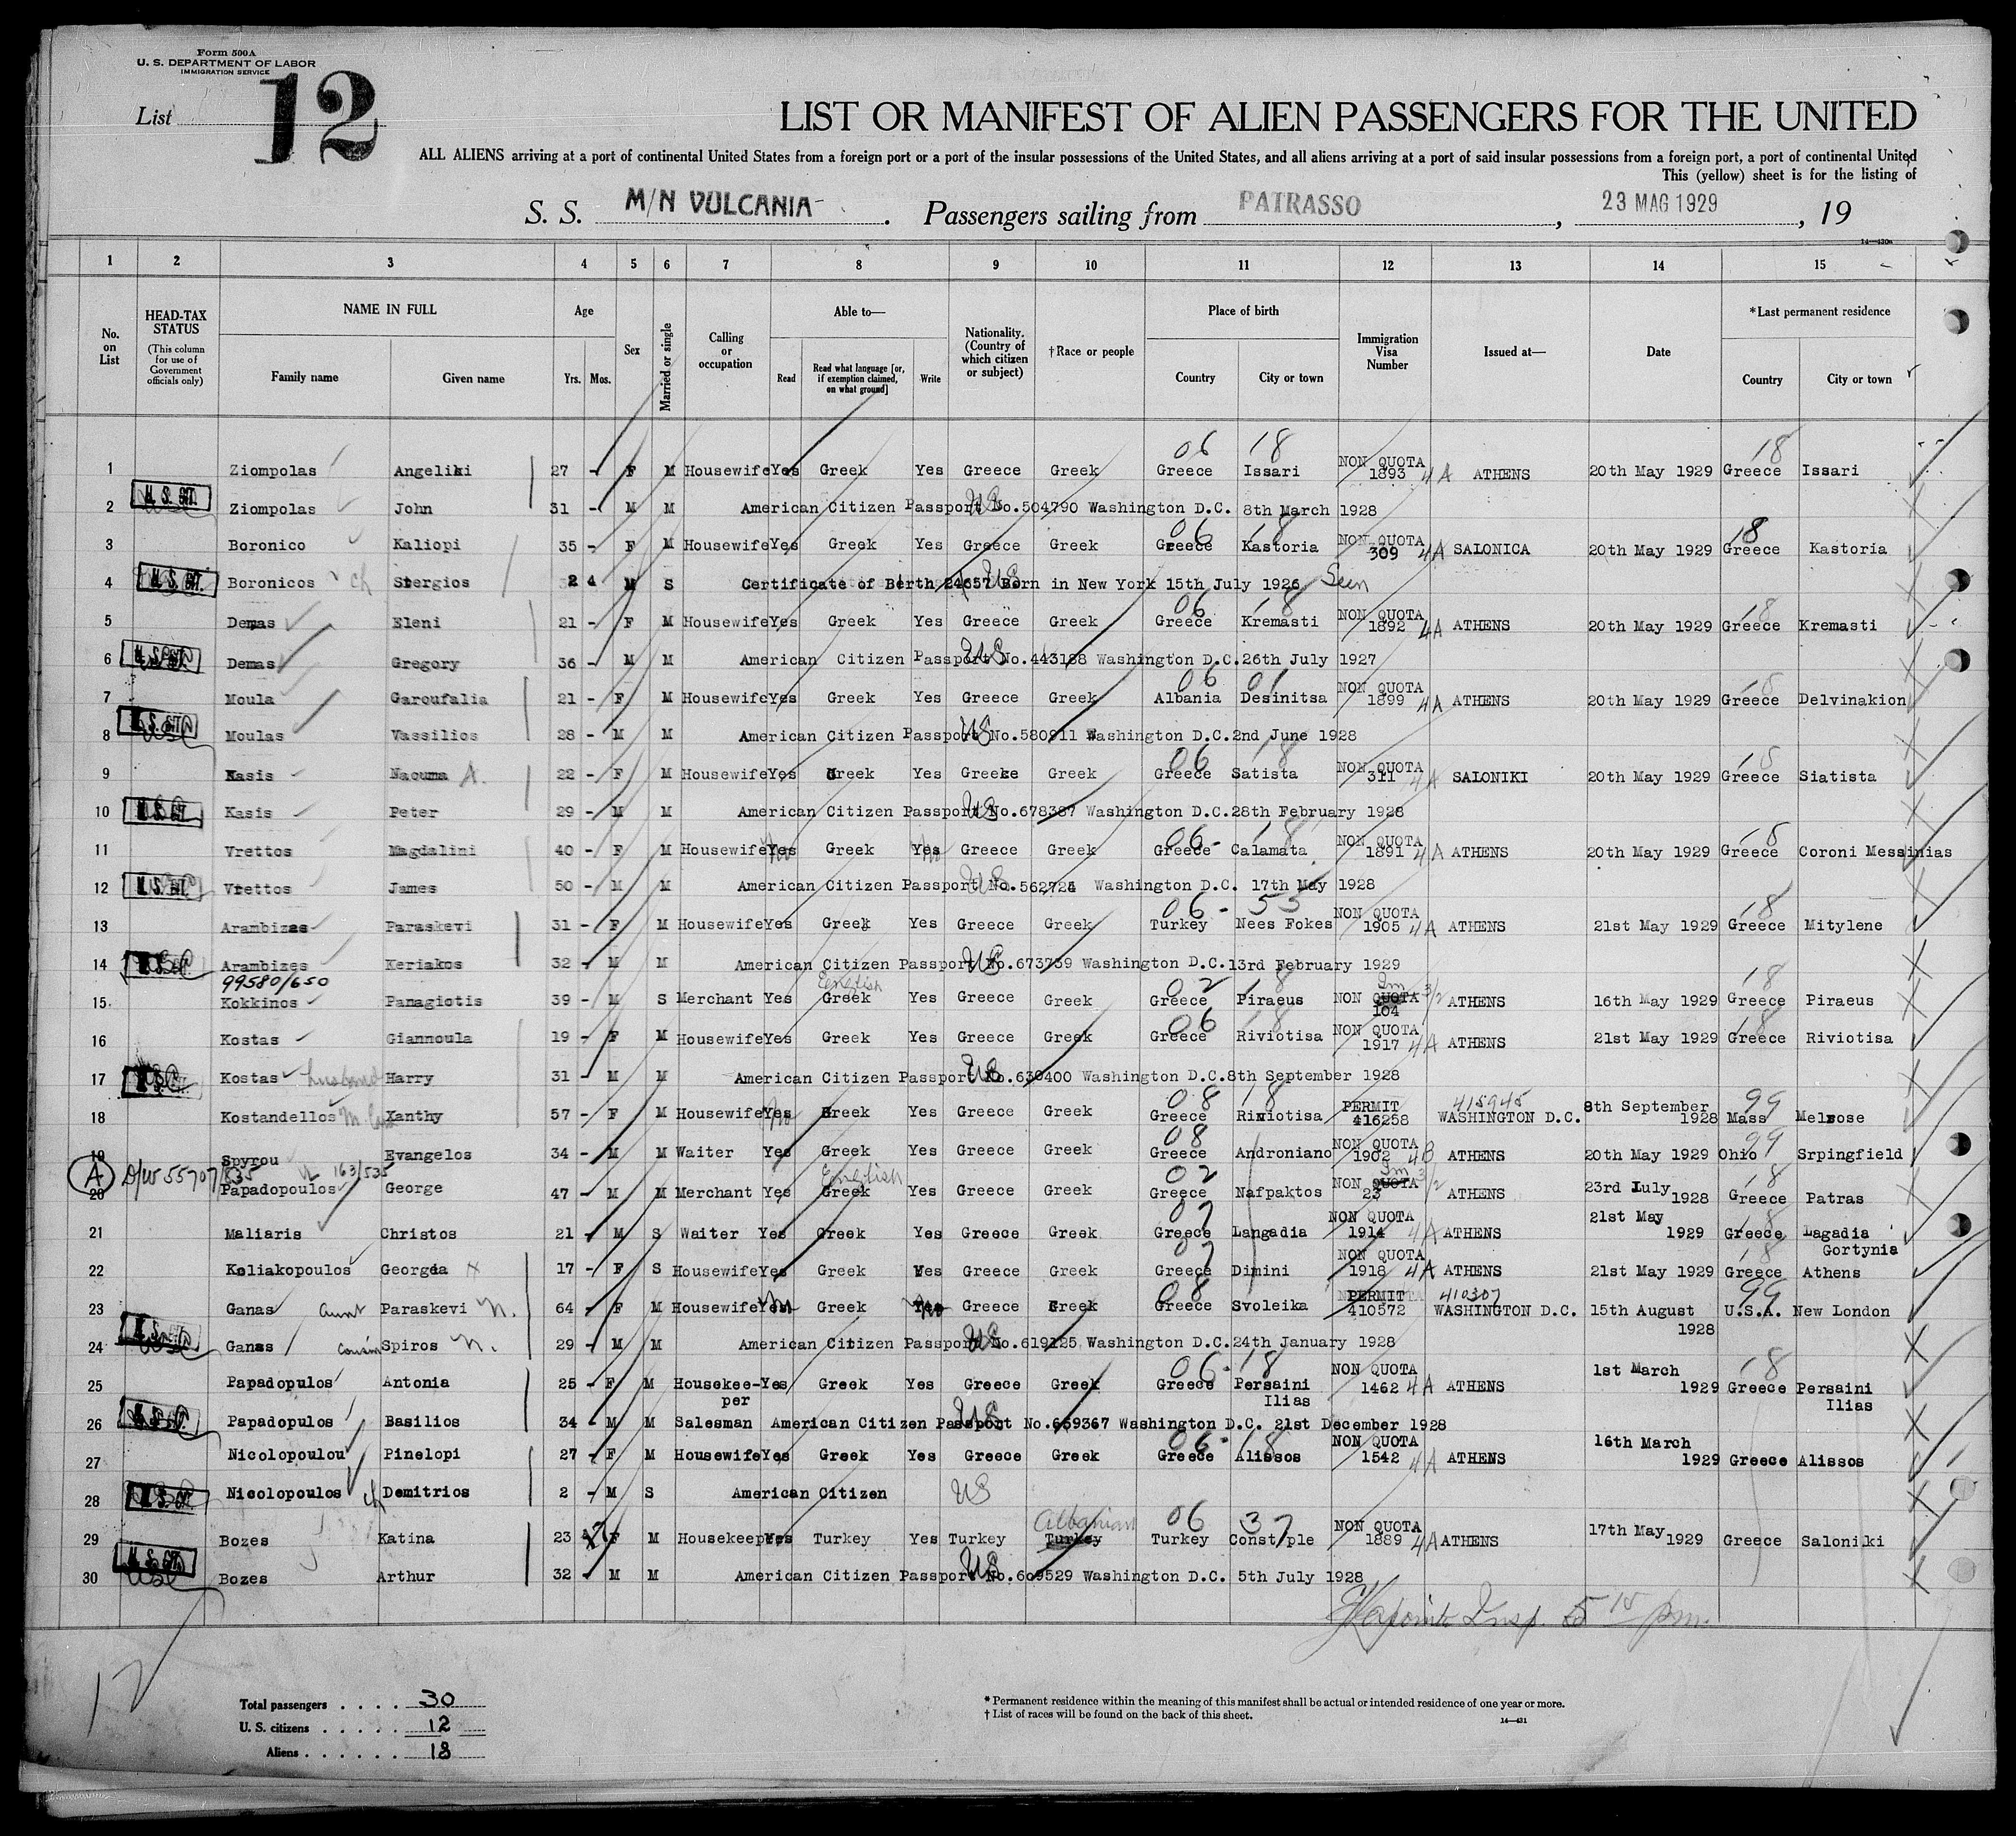 Form 500A
U. S. DEPARTMENT OF LABOR
IMMIGRATION SERVICE
List 12
LIST OR MANIFEST OF ALIEN PASSENGERS FOR THE UNITED
ALL ALIENS arriving at a port of continental United States from a foreign port or a port of the insular possessions of the United States, and all aliens arriving at a port of said insular possessions from a foreign port, a port of continental United
This (yellow) sheet is for the listing of
S. S. M/N VULCANIA. Passengers sailing from PATRASSO, 23 MAG 1929, 19
14—430a
1 2 3 4 5 6 7 8 9 10 11 12 13 14 15
No. on List
HEAD-TAX STATUS (This column for use of Government officials only)
NAME IN FULL
Family name Given name
Age Yrs. Mos.
Sex
Married or single
Calling or occupation
Able to— Read Read what language [or, if exemption claimed, on what ground] Write
Nationality. (Country of which citizen or subject)
†Race or people
Place of birth Country City or town
Immigration Visa Number
Issued at—
Date
*Last permanent residence Country City or town
06 18 18
1 Ziompolas Angeliki 27 - F M Housewife Yes Greek Yes Greece Greek Greece Issari NON QUOTA 1893 4A ATHENS 20th May 1929 Greece Issari
2 U. S. CIT. Ziompolas John 31 - M M American Citizen Passport No.504790 Washington D.C. 8th March 1928 US
06 18 18
3 Boronico Kaliopi 35 - F M Housewife Yes Greek Yes Greece Greek Greece Kastoria NON QUOTA 309 4A SALONICA 20th May 1929 Greece Kastoria
4 U. S. CIT. Boronicos ch Stergios 2 4 M S Certificate of Berth 24657 Born in New York 15th July 1926 Seen US
06 18 18
5 Demas Eleni 21 - F M Housewife Yes Greek Yes Greece Greek Greece Kremasti NON QUOTA 1892 4A ATHENS 20th May 1929 Greece Kremasti
6 U. S. CIT. Demas Gregory 36 - M M American Citizen Passport No.443188 Washington D.C.26th July 1927 US
06 01 18
7 Moula Garoufalia 21 - F M Housewife Yes Greek Yes Greece Greek Albania Desinitsa NON QUOTA 1899 4A ATHENS 20th May 1929 Greece Delvinakion
8 U. S. CIT. Moulas Vassilios 28 - M M American Citizen Passport No.580911 Washington D.C.2nd June 1928 US
06 18 18
9 Kasis Nacuma A. 22 - F M Housewife Yes Greek Yes Greeke Greek Greece Satista NON QUOTA 311 4A SALONIKI 20th May 1929 Greece Siatista
10 U. S. CIT. Kasis Peter 29 - M M American Citizen Passport No.678387 Washington D.C.28th February 1928 US
06- 18 18
11 Vrettos Magdalini 40 - F M Housewife Yes No Greek Yes No Greece Greek Greece Calamata NON QUOTA 1891 4A ATHENS 20th May 1929 Greece Coroni Messinias
12 U. S. CIT. Vrettos James 50 - M M American Citizen Passport No. Washington D.C. 17th May 1928 US
06 - 53 18
13 Arambizas Paraskevi 31 - F M Housewife Yes Greek Yes Greece Greek Turkey Nees Fokes NON QUOTA 1905 4A ATHENS 21st May 1929 Greece Mitylene
14 U. S. CIT. Arambizes Keriakos 32 - M M American Citizen Passport No.673739 Washington D.C.13rd February 1929 US
99580/650 English 02 18 18
15 Kokkinos Panagiotis 39 - M S Merchant Yes Greek Yes Greece Greek Greece Piraeus NON QUOTA 104 3/2 ATHENS 16th May 1929 Greece Piraeus
06 18 18
16 Kostas Giannoula 19 - F M Housewife Yes Greek Yes Greece Greek Greece Riviotisa NON QUOTA 1917 4A ATHENS 21st May 1929 Greece Riviotisa
17 U. S. CIT. Kostas husband Harry 31 - M M American Citizen Passport No.630400 Washington D.C.8th September 1928 US
08 18 415945 99
18 Kostandellos Xanthy 57 - F M Housewife Yes No Greek Yes Greece Greek Greece Riziotisa PERMIT 416258 WASHINGTON D.C. 8th September 1928 Mass Melrose
08 99
19 Spyrou Evangelos 34 - M M Waiter Yes Greek Yes Greece Greek Greece Androniano NON QUOTA 1902 4B ATHENS 20th May 1929 Ohio Srpingfield
A 55707/835 163/535 English 02 18
20 Papadopoulos George 47 - M M Merchant Yes Greek Yes Greece Greek Greece Nafpaktos NON QUOTA 23 3/2 ATHENS 23rd July 1928 Greece Patras
07 18
21 Maliaris Christos 21 - M S Waiter Yes Greek Yes Greece Greek Greece Langadia NON QUOTA 1914 4A ATHENS 21st May 1929 Greece Lagadia Gortynia
07 18
22 Koliakopoulos Georgia 17 - F S Housewife Yes Greek Yes Greece Greek Greece Dimini NON QUOTA 1918 4A ATHENS 21st May 1929 Greece Athens
08 410307 99
23 Ganas Aunt Paraskevi N. 64 - F M Housewife Yes No Greek Yes No Greece Greek Greece Svoleika PERMIT 410572 WASHINGTON D.C. 15th August 1928 U.S.A. New London
24 U. S. CIT. Ganas cousin Spiros N. 29 - M M American Citizen Passport No.619125 Washington D.C.24th January 1928 US
06-18 18
25 Papadopulos Antonia 25 - F M Housekee-per Yes Greek Yes Greece Greek Greece Persaini Ilias NON QUOTA 1462 4A ATHENS 1st March 1929 Greece Persaini Ilias
26 U. S. CIT. Papadopulos Basilios 34 - M M Salesman American Citizen Passport No.659367 Washington D.C. 21st December 1928 US
06-18
27 Nicolopoulou Pinelopi 27 - F M Housewife Yes Greek Yes Greece Greek Greece Alissos NON QUOTA 1542 4A ATHENS 16th March 1929 Greece Alissos
28 U. S. CIT. Nicolopoulos ch Demitrios 2 - M S American Citizen US
Albanian 06 37
29 Bozes Katina 23 F M Housekeeper Yes Turkey Yes Turkey Turkey Turkey Const/ple NON QUOTA 1889 4A ATHENS 17th May 1929 Greece Saloniki
30 U. S. CIT. Bozes Arthur 32 - M M American Citizen Passport No.609529 Washington D.C. 5th July 1928 US
Insp. 5 15 pm.
12
Total passengers . . . . 30
U. S. citizens . . . . . 12
Aliens . . . . . . 18
* Permanent residence within the meaning of this manifest shall be actual or intended residence of one year or more.
† List of races will be found on the back of this sheet.
14—431